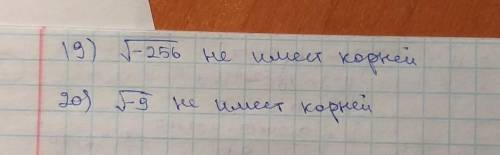 19) √-256 не имеет корней
20) √-9 не имеет корней